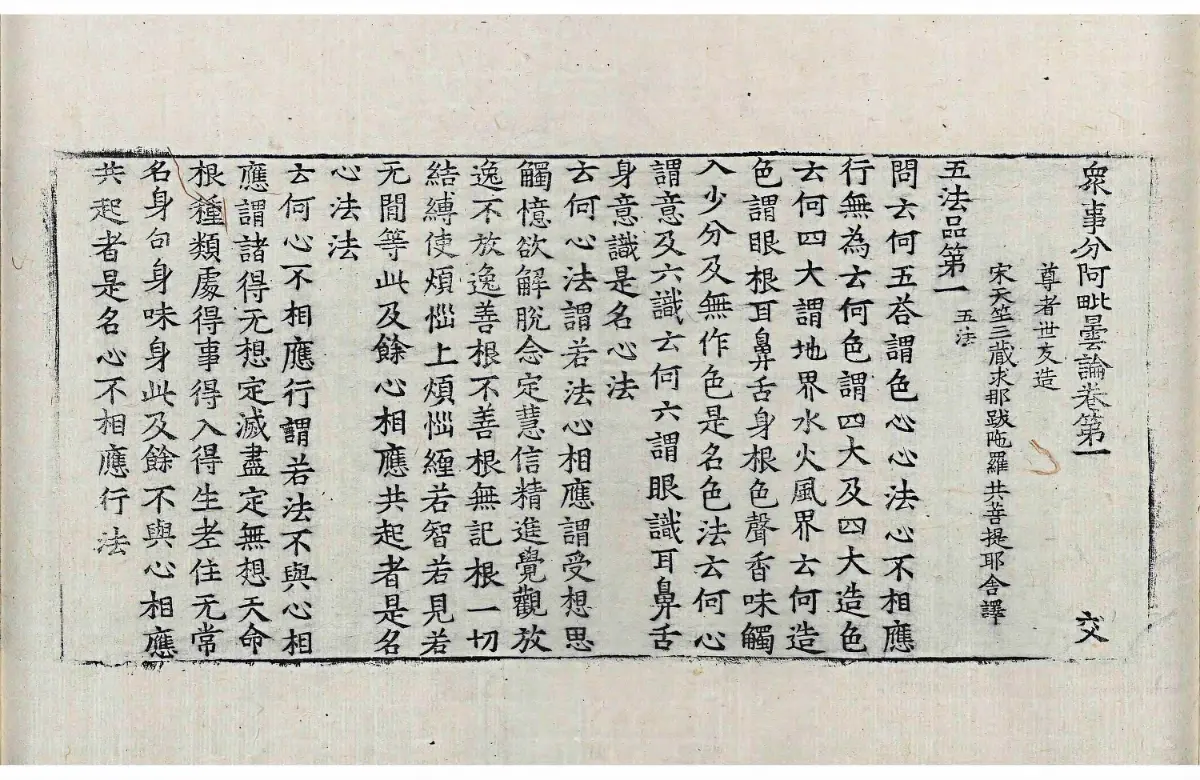 衆事分阿毗曇論卷第一 交
尊者世友造
宋天竺三藏求那跋陁羅共菩提耶舍譯
五法品第一 五法
問云何五荅謂色心心法心不相應
行無為云何色謂四大及四大造色
云何四大謂地界水火風界云何造
色謂眼根耳鼻舌身根色聲香味觸
入少分及無作色是名色法云何心
謂意及六識云何六謂眼識耳鼻舌
身意識是名心法
云何心法謂若法心相應謂受想思
觸憶欲解脫念定慧信精進覺觀放
逸不放逸善根不善根無記根一切
結縛使煩惱上煩惱纏若智若見若
无間等此及餘心相應共起者是名
心法法
云何心不相應行謂若法不與心相
應謂諸得无想定滅盡定無想天命
根種類處得事得入得生老住无常
名身句身味身此及餘不與心相應
共起者是名心不相應行法